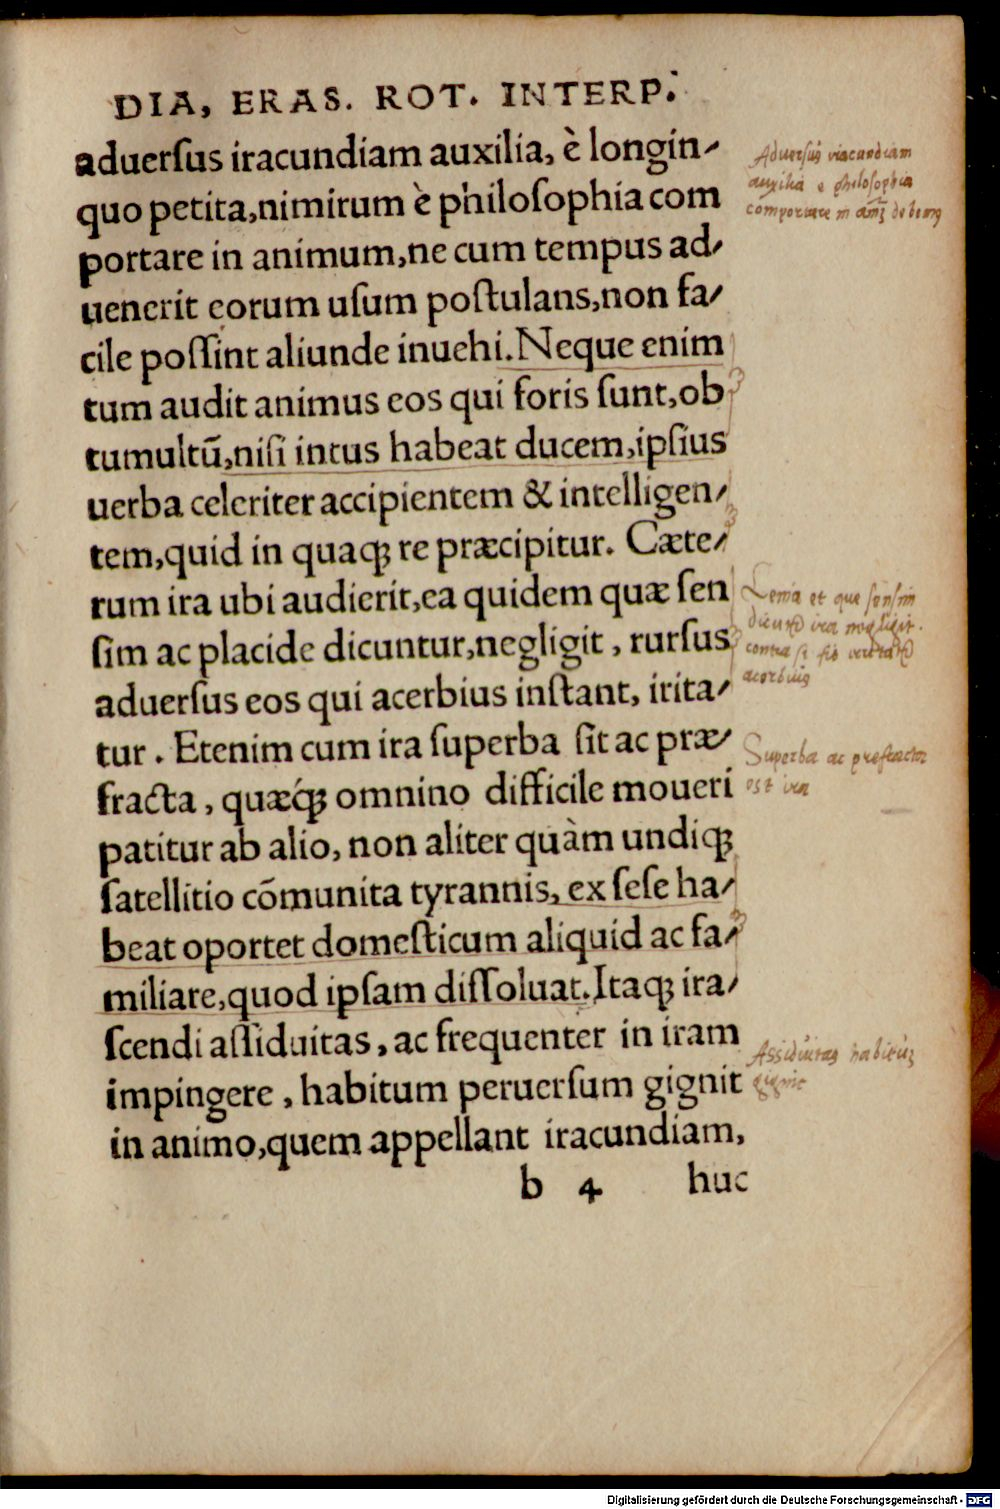 DIA, ERAS. ROT. INTERP.
aduerſus iracundiam auxilia, è longin-
quo petita,nimirum è philoſophia com
portare in animum,ne cum tempus ad-
uenerit eorum uſum poſtulans,non fa-
cile poſſint aliunde inuehi. Neque enim
tum audit animus eos qui foris ſunt,ob
tumultū,niſi intus habeat ducem,ipſius
uerba celeriter accipientem & intelligen-
tem,quid in quaqꝫ re præcipitur. Cæte-
rum ira ubi audierit,ea quidem quæ ſen
ſim ac placide dicuntur,negligit, rurſus
aduerſus eos qui acerbius inſtant, irita-
tur. Etenim cum ira ſuperba ſit ac præ-
fracta, quæq́ꝫ omnino difficile moueri
patitur ab alio, non aliter quàm undiqꝫ
ſatellitio cōmunita tyrannis, ex ſeſe ha-
beat oportet domeſticum aliquid ac fa-
miliare,quod ipſam diſſoluat. Itaqꝫ ira-
ſcendi aſſiduitas, ac frequenter in iram
impingere, habitum peruerſum gignit
in animo,quem appellant iracundiam,
b 4 huc
Aduersus iracundiam
auxilia e philosophia
comportare in
Lenia et que sensim
ira negligit.
contra si
acerbius
Superba ac prefracta
est ira
Assiduitas habitum
gignit
Digitalisierung gefördert durch die Deutsche Forschungsgemeinschaft - DFG